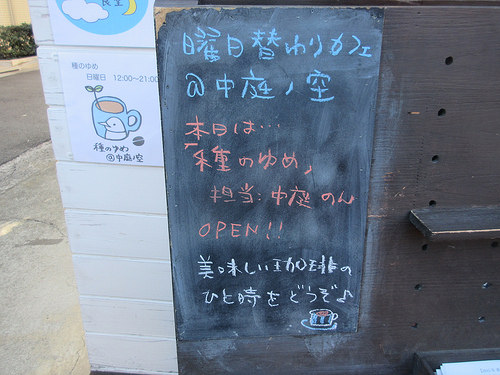 食堂
種のゆめ
日曜日 12:00～21:00
種のゆめ
@中庭ノ空
曜日替わりカフェ
@中庭ノ空
本日は…
「種のゆめ」
担当:中庭のん
OPEN!!
美味しい珈琲の
ひと時をどうぞ♪